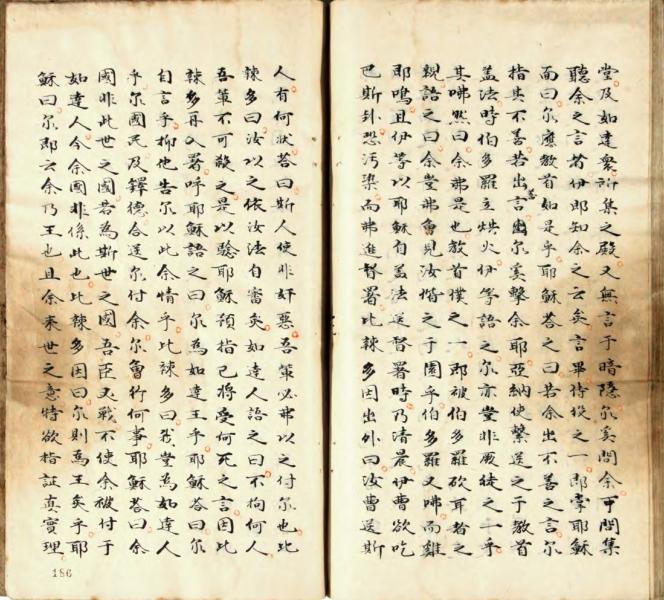 堂及如達衆所集之殿又無言于暗隱尔奚問余可問集
聽余之言者伊即知余之云矣言畢侍役之一即掌耶穌
面曰尔應教首如是乎耶穌答之曰若余出不善之言尔
指其不善若出言善尔奚擊余耶亞納使繫送之于教首
盖法時伯多羅立烘火伊等語之尔亦豈非厥徒之一乎
其咈然曰余弗是也教首僕之一即被伯多羅砍耳者之
親語之曰余豈弗曾見汝偕之于園乎伯多羅又咈而雞
即鳴且伊等以耶穌自盖法送督署時乃清晨伊曹欲吃
巴斯卦恐污染而弗進督署比辣多因出外曰汝曹送斯
人有何狀答曰斯人使非奸惡吾輩必弗以之付尔也比
辣多曰汝以之依汝法自審矣如達人語之曰不拘何人
吾輩不可殺之是以驗耶穌預指已將受何死之言因比
辣多再入署呼耶穌語之曰尔為如達王乎耶穌答曰尔
自言乎抑他告尔以此余情乎比辣多曰我豈為如達人
乎尔國民及鐸德僉送尔付余尔曾行何事耶穌答曰余
國非此世之國若為斯世之國吾臣必戰不使余被付于
如達人今余國非係此也比辣多因曰尔則為王矣乎耶
穌曰尔即云余乃王也且余來世之意特欲指証真實理
186